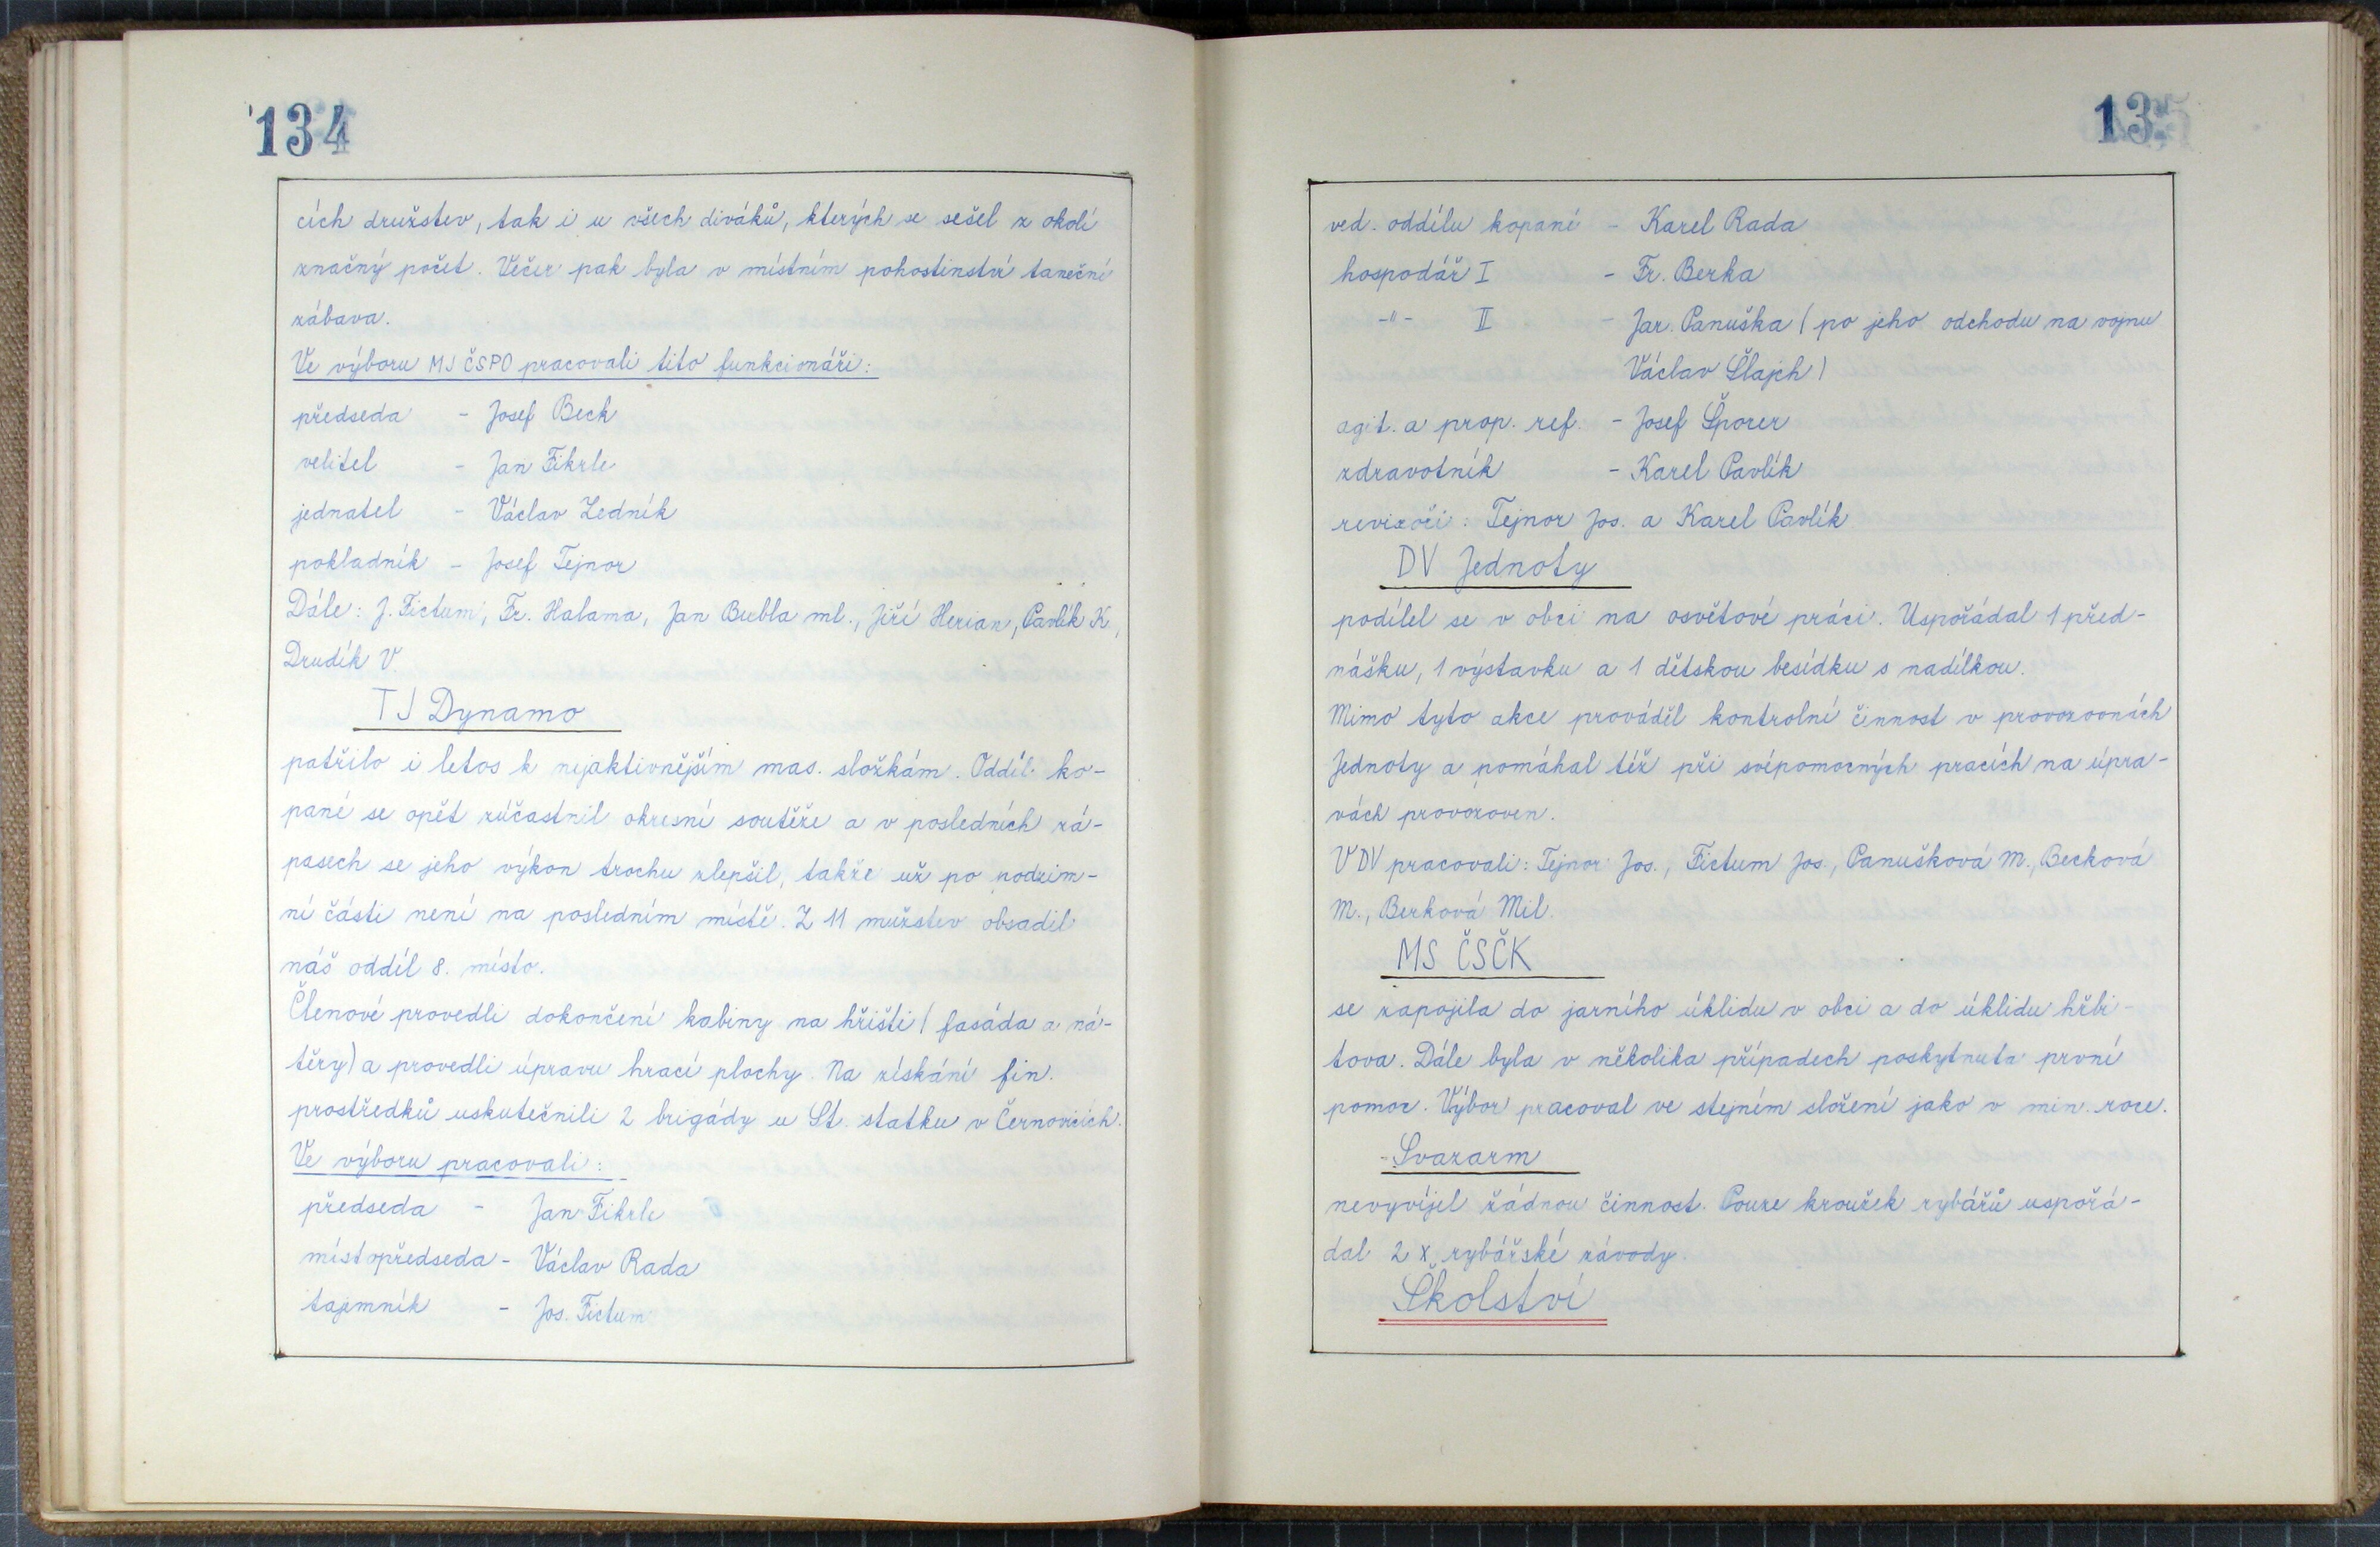 134
cích družstev, tak i u všech diváků, kterých se sešel z okolí
značný počet. Večer pak byla v místním pohostinství taneční
zábava.
Ve výboru MJ ČSPO pracovali tito funkcionáři:
předseda - Josef Beck
velitel - Jan Fikrle
jednatel - Václav Ledník
pokladník - Josef Tejnor
Dále: J. Fictum, Fr. Halama, Jan Bubla ml., Jiří Herian, Pavlík K.,
Drudík V.
TJ Dynamo
patřilo i letos k nejaktivnějším mas. složkám. Oddíl ko-
pané se opět zúčastnil okresní soutěže a v posledních zá-
pasech se jeho výkon trochu zlepšil, takže už po podzim-
ní části není na posledním místě. Z 11 mužstev obsadil
náš oddíl 8. místo.
Členové provedli dokončení kabiny na hřišti (fasáda a ná-
těry) a provedli úpravu hrací plochy. Na získání fin.
prostředků uskutečnili 2 brigády u St. statku v Černovicích.
Ve výboru pracovali:
předseda - Jan Fikrle
místopředseda - Václav Rada
tajemník - Jos. Fictum
135
ved. oddílu kopané - Karel Rada
hospodář I - Fr. Berka
-"- II - Jar. Panuška (po jeho odchodu na vojnu
Václav Šlajch)
agit. a prop. ref. - Josef Šporer
zdravotník - Karel Pavlík
revizoři: Tejnor Jos. a Karel Pavlík
DV Jednoty
podílel se v obci na osvětové práci. Uspořádal 1 před-
nášku, 1 výstavku a 1 dětskou besídku s nadílkou.
Mimo tyto akce prováděl kontrolní činnost v provozovnách
Jednoty a pomáhal též při svépomocných pracích na úpra-
vách provozoven.
V DV pracovali: Tejnor Jos., Fictum Jos., Panušková M., Becková
M., Berková Mil.
MS ČSČK
se zapojila do jarního úklidu v obci a do úklidu hřbi-
tova. Dále byla v několika případech poskytnuta první
pomoc. Výbor pracoval ve stejném složení jako v min. roce.
Svazarm
nevyvíjel žádnou činnost. Pouze kroužek rybářů uspořá-
dal 2 x rybářské závody.
Školství